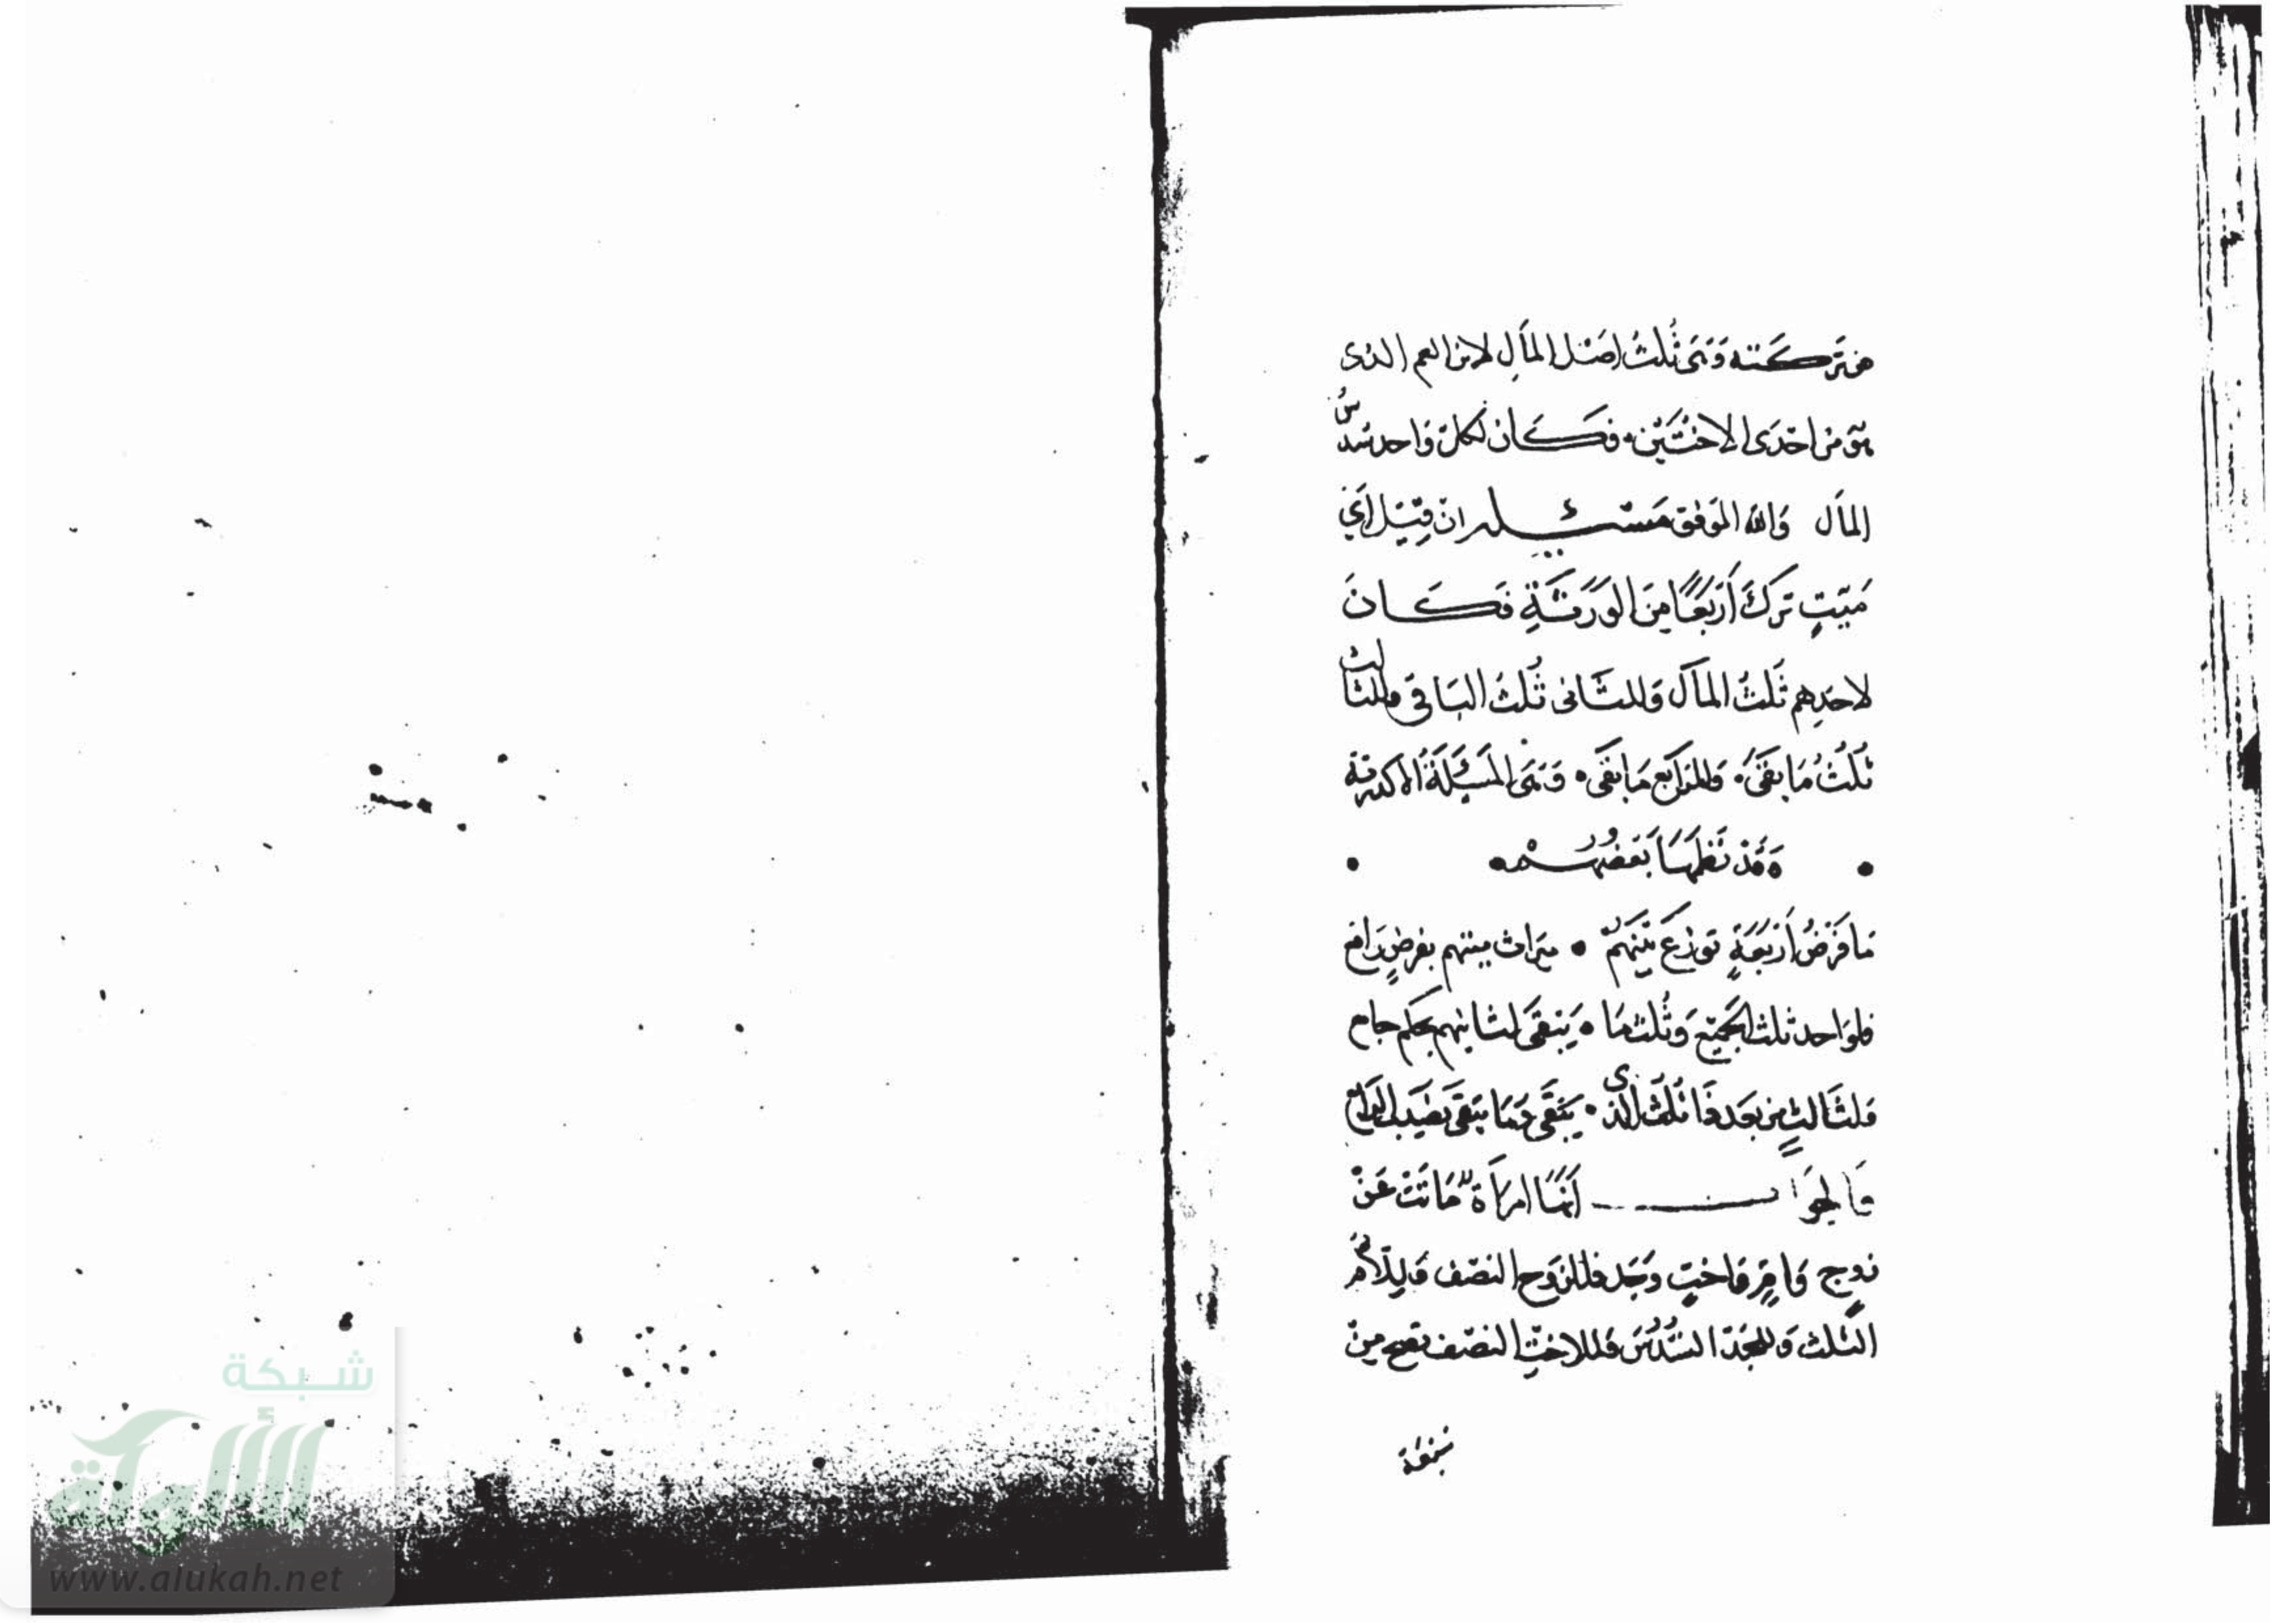 من تركته وهى ثلث اصل المال لابن العم الذى
هو من احدى الاختين، فكان لكل واحد سدس
المال والله الموفق مسئله ان قيل اي
ميتٍ ترك أربعًا من الورثةِ فكان
لاحدِهم ثلثُ المال وللثانى ثلثُ الباقي وللثالث
ثلثُ ما بقى، وللرابع ما بقى، وهى المسئلةُ الاكدرية
وقد نظمها بعضهم
ما فرضُ أربعةٍ توزعَ بينهم • ميراث ميتهم بفرضٍ رافع
فلواحد ثلث الجميع وثلث ما • يبقى لثانيهم بحكم جامع
ولثالثٍ من بعد ذا ثلث الذى • يبقى وما يبقى نصيب الرابع
والجواب أنها امرأة ماتت عن
زوج وامٍ واختٍ وجد فللزوج النصف وللأم
الثلث وللجد السدس وللاخت النصف تصح من
سبعة
شبكة
الألوكة
www.alukah.net